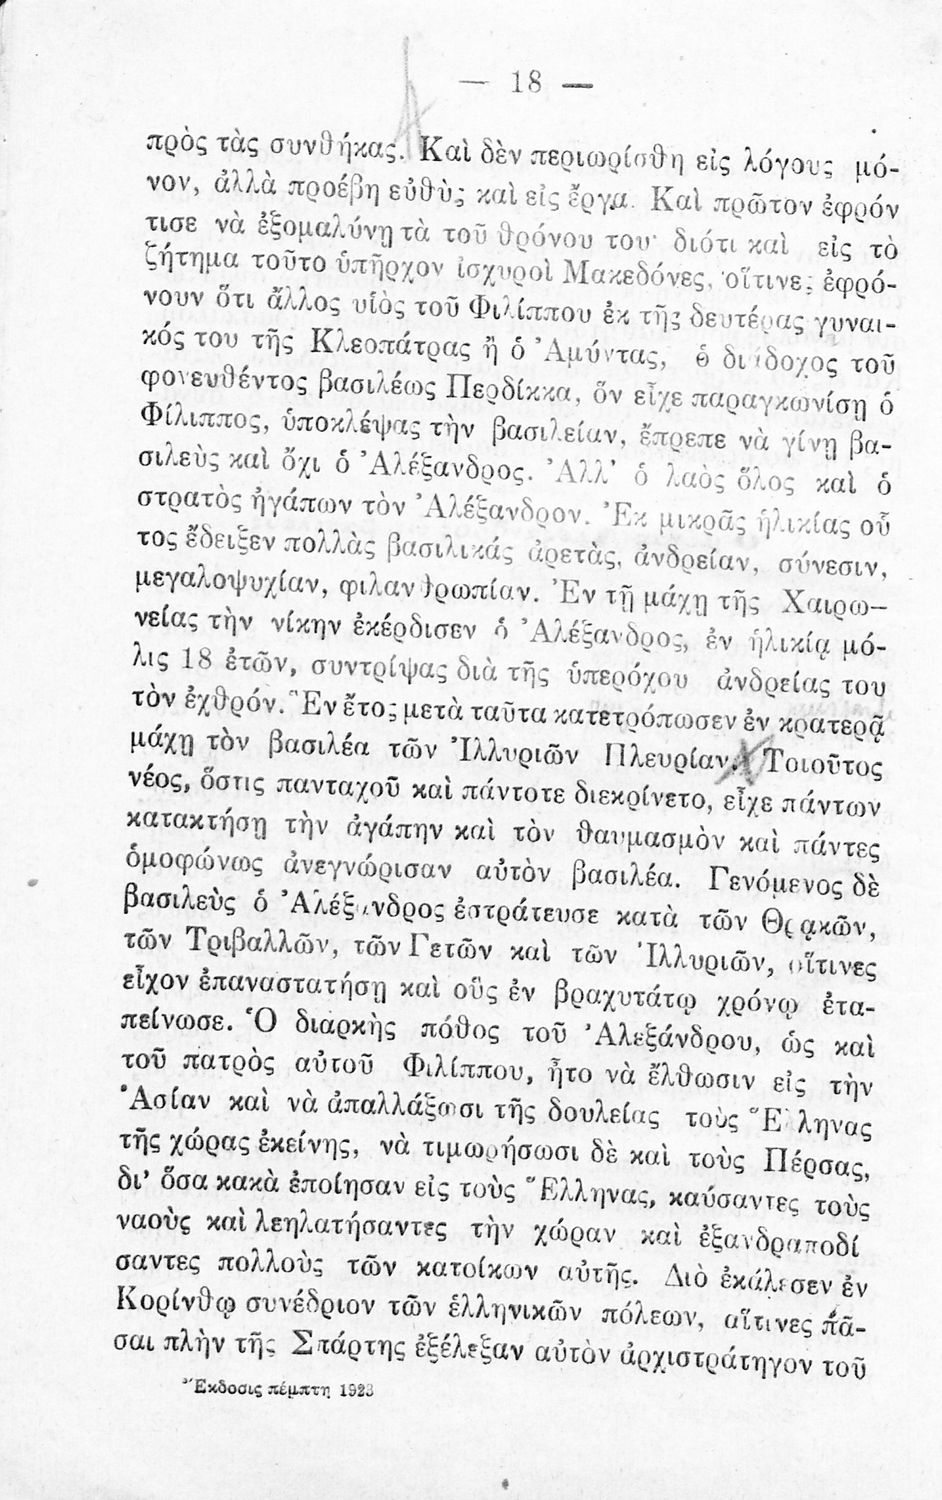 — 18 —
πρὸς τὰς συνθήκας. Καὶ δὲν περιωρίσθη εἰς λόγους μό-
νον, ἀλλὰ προέβη εὐθὺς καὶ εἰς ἔργα. Καὶ πρῶτον ἐφρόν
τισε νὰ ἐξομαλύνῃ τὰ τοῦ θρόνου του· διότι καὶ εἰς τὸ
ζήτημα τοῦτο ὑπῆρχον ἰσχυροὶ Μακεδόνες, οἵτινες ἐφρό-
νουν ὅτι ἄλλος υἱὸς τοῦ Φιλίππου ἐκ τῆς δευτέρας γυναι-
κός του τῆς Κλεοπάτρας ἢ ὁ Ἀμύντας, ὁ διάδοχος τοῦ
φονευθέντος βασιλέως Περδίκκα, ὃν εἶχε παραγκωνίσῃ ὁ
Φίλιππος, ὑποκλέψας τὴν βασιλείαν, ἔπρεπε νὰ γίνῃ βα-
σιλεὺς καὶ ὄχι ὁ Ἀλέξανδρος. Ἀλλ' ὁ λαὸς ὅλος καὶ ὁ
στρατὸς ἠγάπων τὸν Ἀλέξανδρον. Ἐκ μικρᾶς ἡλικίας οὗ
τος ἔδειξεν πολλὰς βασιλικάς ἀρετὰς, ἀνδρείαν, σύνεσιν,
μεγαλοψυχίαν, φιλανθρωπίαν. Ἐν τῇ μάχῃ τῆς Χαιρω—
νείας τὴν νίκην ἐκέρδισεν ὁ Ἀλέξανδρος, ἐν ἡλικίᾳ μό-
λις 18 ἐτῶν, συντρίψας διὰ τῆς ὑπερόχου ἀνδρείας του
τὸν ἐχθρόν. Ἓν ἔτος μετὰ ταῦτα κατετρόπωσεν ἐν κρατερᾷ
μάχῃ τὸν βασιλέα τῶν Ἰλλυριῶν Πλευρίαν. Τοιοῦτος
νέος, ὅστις πανταχοῦ καὶ πάντοτε διεκρίνετο, εἶχε πάντων
κατακτήσῃ τὴν ἀγάπην καὶ τὸν θαυμασμὸν καὶ πάντες
ὁμοφώνως ἀνεγνώρισαν αὐτὸν βασιλέα. Γενόμενος δὲ
βασιλεὺς ὁ Ἀλέξανδρος ἐστράτευσε κατὰ τῶν Θρᾳκῶν,
τῶν Τριβαλλῶν, τῶν Γετῶν καὶ τῶν Ἰλλυριῶν, οἵτινες
εἶχον ἐπαναστατήσῃ καὶ οὓς ἐν βραχυτάτῳ χρόνῳ ἐτα-
πείνωσε. Ὁ διαρκὴς πόθος τοῦ Ἀλεξάνδρου, ὡς καὶ
τοῦ πατρὸς αὐτοῦ Φιλίππου, ἦτο νὰ ἔλθωσιν εἰς τὴν
Ἀσίαν καὶ νὰ ἀπαλλάξωσι τῆς δουλείας τοὺς Ἕλληνας
τῆς χώρας ἐκείνης, νὰ τιμωρήσωσι δὲ καὶ τοὺς Πέρσας,
δι' ὅσα κακὰ ἐποίησαν εἰς τοὺς Ἕλληνας, καύσαντες τοὺς
ναοὺς καὶ λεηλατήσαντες τὴν χώραν καὶ ἐξανδραποδί
σαντες πολλοὺς τῶν κατοίκων αὐτῆς. Διὸ ἐκάλεσεν ἐν
Κορίνθῳ συνέδριον τῶν ἑλληνικῶν πόλεων, αἵτινες πᾶ-
σαι πλὴν τῆς Σπάρτης ἐξέλεξαν αὐτὸν ἀρχιστράτηγον τοῦ
Ἔκδοσις πέμπτη 1923